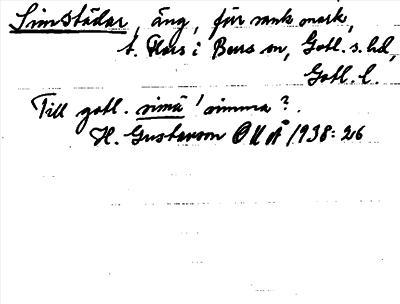 Simstädar, äng, förr sank mark,
t. Hors i Burs sn, Gotl. s. hd,
Gotl. l.
Till gotl. simä 'simma'?.
H. Gustavson OUÅ 1938: 26